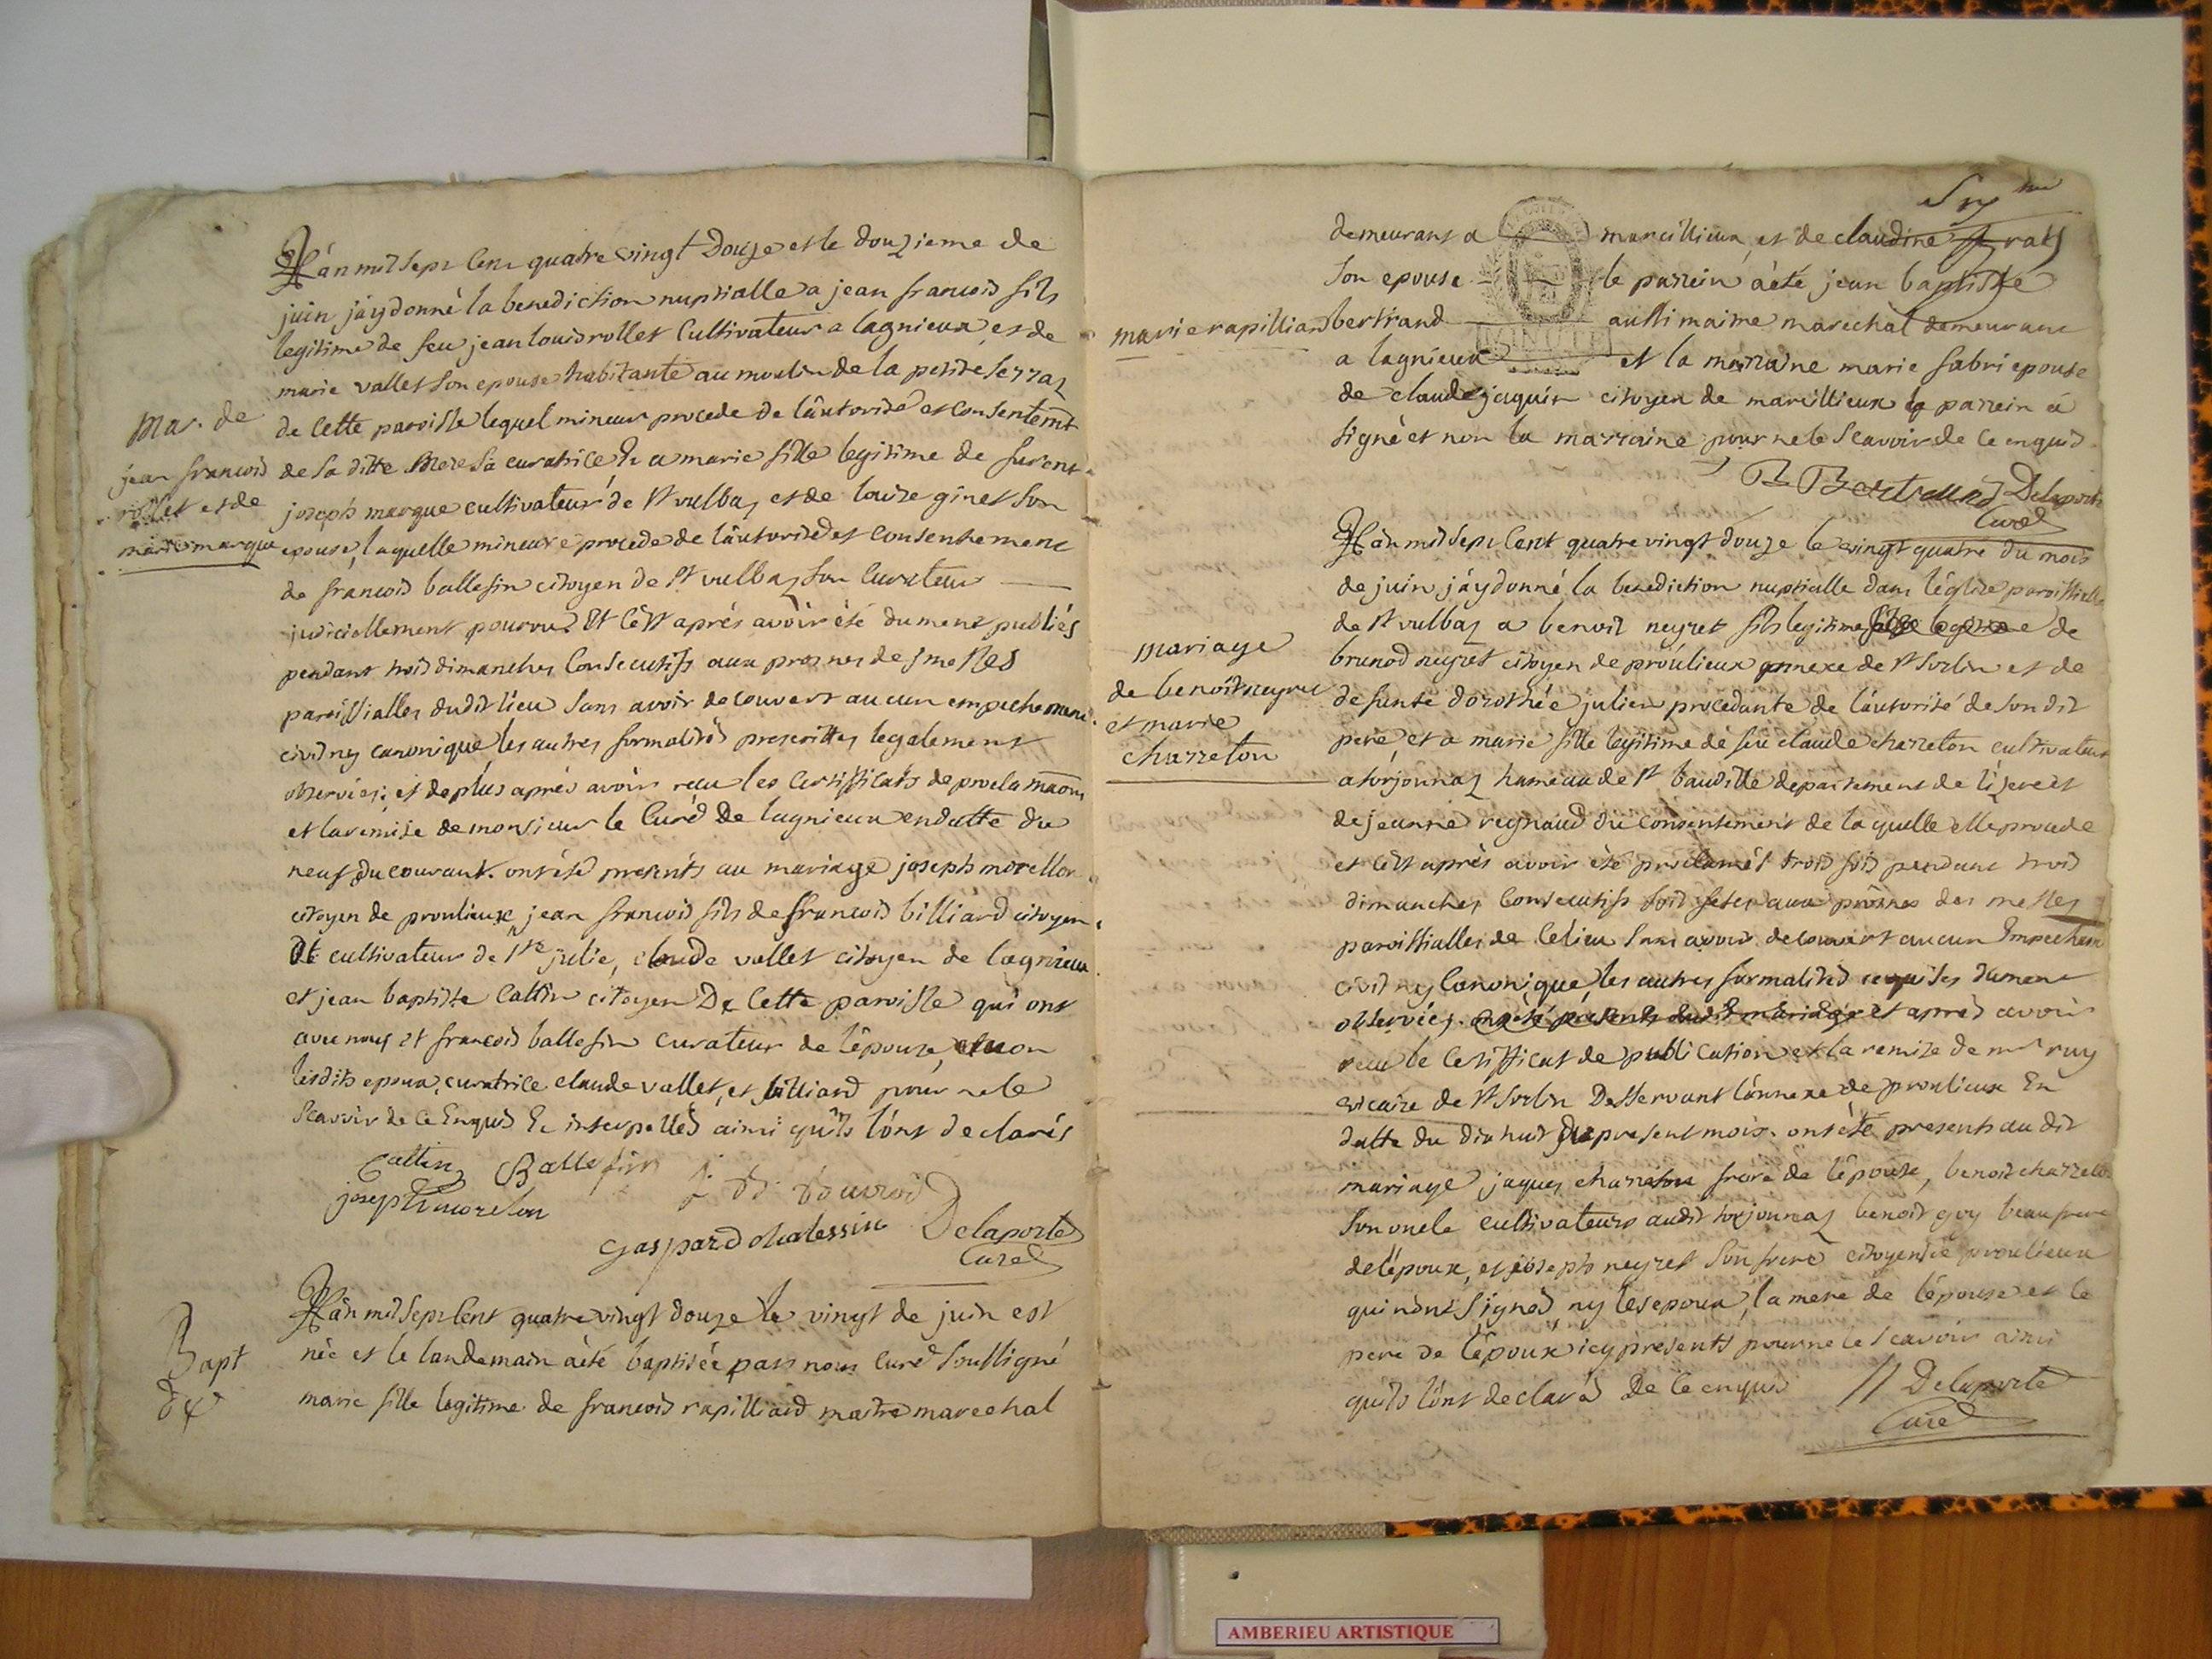 L'an mil sept cent quatre vingt Douze et le douzieme de
juin j'ay donné la benediction nuptialle a jean francois fils
legitime de feu jean louis rollet Cultivateur a lagnieux, et de
marie vallet son epouse habitante au moulin de la petite serraz
de cette paroisse lequel mineur procede de l'autorité et consentemt
de sa ditte Mere sa curatrice Et a marie fille legitime de
joseph marque cultivateur de St vulbaz et de louize ginet son
epouse, laquelle mineure procede de l'autorité et consentement
de francois ballefin citoyen de St vulbaz son Curateur
judiciellement pourvu. Et c'est aprés avoir été dument publiés
pendant trois dimanches Consecutifs aux prosnes des messes
paroissialles dudit lieu sans avoir decouvert aucun empechement
civil ny canonique les autres formalités prescrittes legalement
observées; et de plus aprés avoir recu les Certifficats de proclamãons
et la remise de monsieur le Curé De lagnieux en datte du
neuf du courant. ont été presents au mariage joseph morellon
citoyen de proulieux jean francois fils de francois billiard citoyen
et cultivateur de Ste julie, claude vallet citoyen de lagnieux
et jean baptiste Cattin citoyen De Cette paroisse qui ont
avec nous et francois ballefin curateur de l'epouze, et non
lesdits epoux, curatrice claude vallet, et billiard pour ne le
scavoir de ce Enquis Et interpellés ainsi qu'ils l'ont declarés
Cattin Ballefin
joseph morelon
Gaspard Delaporte
Curé
mar. de
jean francois
rollet et de
marie marque
L'an mil sept Cent quatre vingt douze le vingt de juin est
née et le landemain a été baptisée par nous Curé soussigné
marie fille legitime de francois rapilliard maitre marechal
Bapt
de
demeurant a marcillieux, et de claudine
son epouse le parrein a été jean baptiste
bertrand aussi maitre marechal demeurant
a lagnieux et la marraine marie fabri epouse
de claude jaquin citoyen de marcillieux le parrein a
signé et non la marraine pour ne le Scavoir de ce enquis
Bertrand Delaporte
Curé
marie rapilliard
L'an mil sept Cent quatre vingt douze le vingt quatre du mois
de juin j'ay donné la benediction nuptialle dans l'église paroissialle
de St vulbaz a benoit neyret fils legitime de
brunod neyret citoyen de proulieux annexe de St Sorlin et de
defunte dorothée julien procedante de l'autorité de son dit
pere, et a marie fille legitime de feu claude charreton cultivateur
a torjonnaz hameau de St baudille departement de l'izere et
de jeanne reynaud du consentement de laquelle elle procede
et c'est aprés avoir été proclamés trois fois pendant trois
dimanches Consecutifs aux prônes des messes
paroissialles de Ce lieu sans avoir decouvert aucun Empechem
civil ny Canonique, les autres formalités requises dument
observées. ont été presents audit mariage et aprés avoir
recu le Certifficat de publication et la remise de mr ruy
vicaire de St Sorlin Desservant l'annexe de proulieux En
datte du dix huit du present mois. ont été presents au dit
mariage jaques charreton frere de l'epouse, benoit charreton
son oncle cultivateurs audit torjonnaz benoit guy beau frere
de l'époux, et joseph neyret son frere citoyens de proulieux
qui n'ont signés ny les epoux, la mere de l'epouse et le
pere de l'époux icy presents pour ne le scavoir ainsi
qu'ils l'ont declarés De ce enquis Delaporte
Curé
mariage
de benoit neyret
et marie
charreton
MINUTE
AMBERIEU ARTISTIQUE